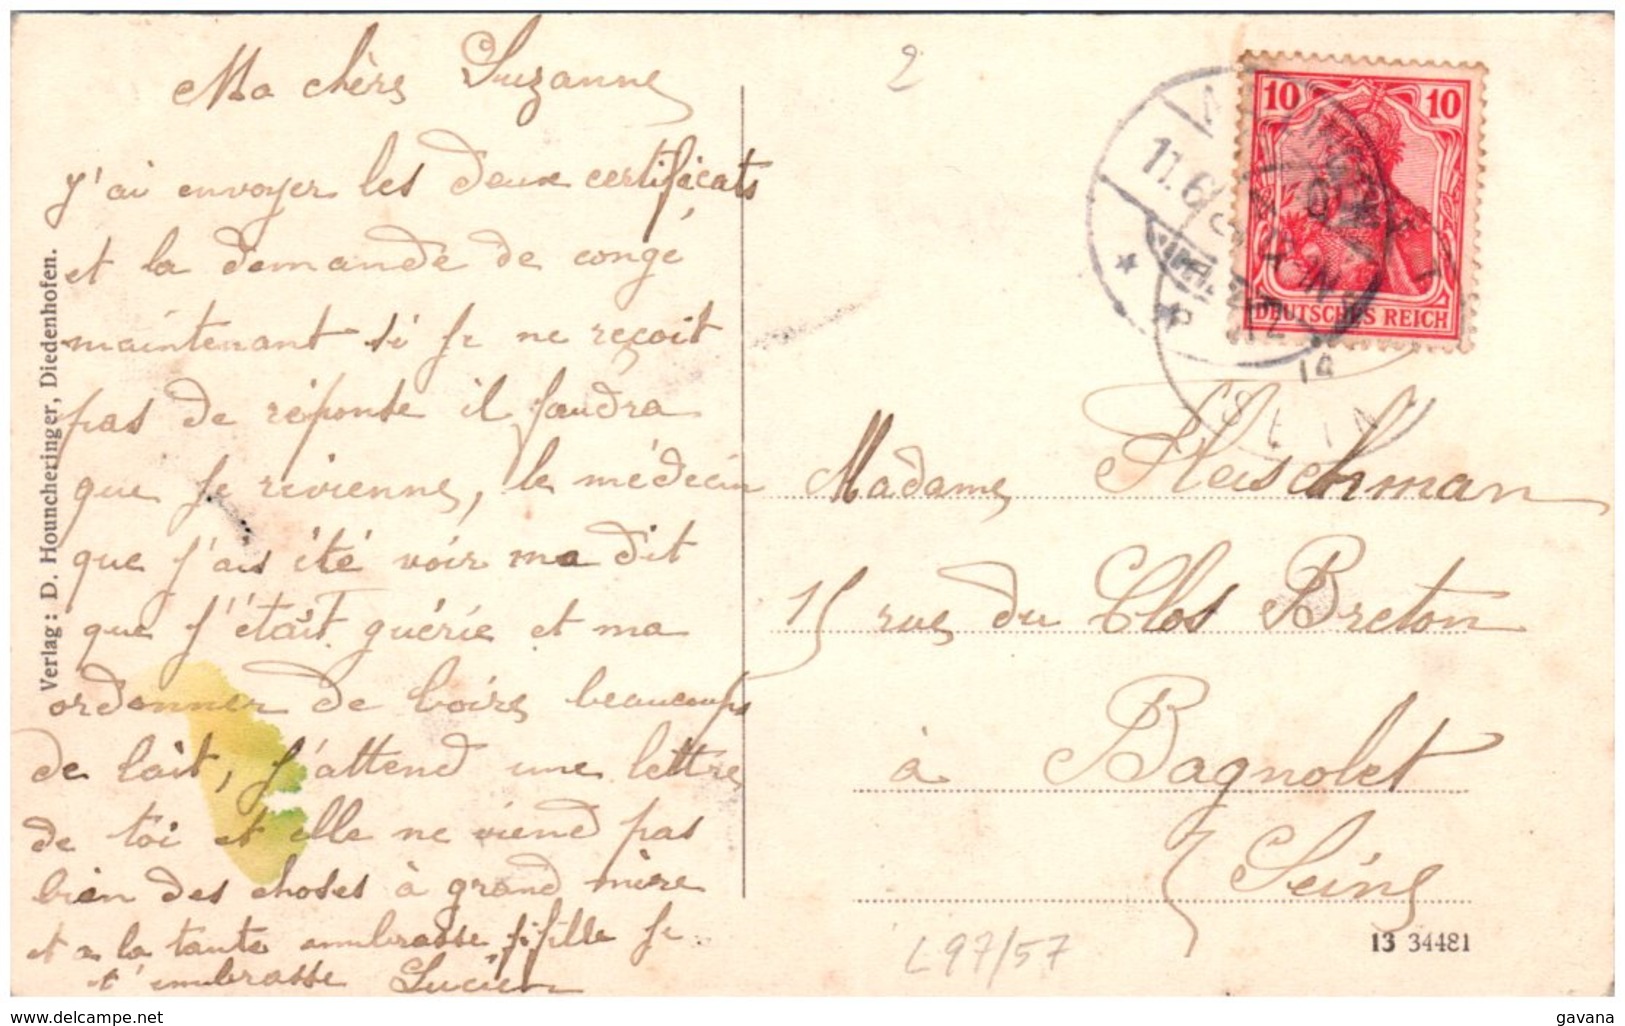 Ma chère Suzanne
j'ai envoyer les deux certificats
et la demande de congé
maintenant si je ne reçoit
pas de réponse il faudra
que je revienne, le médecin
que j'ais été voir ma dit
que j'était guérie et ma
ordonner de boire beaucoups
de lait, j'attend une lettre
de toi et elle ne viend pas
bien des choses à grand mère
et a la tante ambrasse fifille je
t'embrasse Lucien
Verlag: D. Houncheringer, Diedenhofen.
2
10 10
DEUTSCHES REICH
11.6
14
Madame Fleischman
15 rue du Clos Breton
à Bagnolet
Seine
13 34481
L97/57
www.delcampe.net
gavana